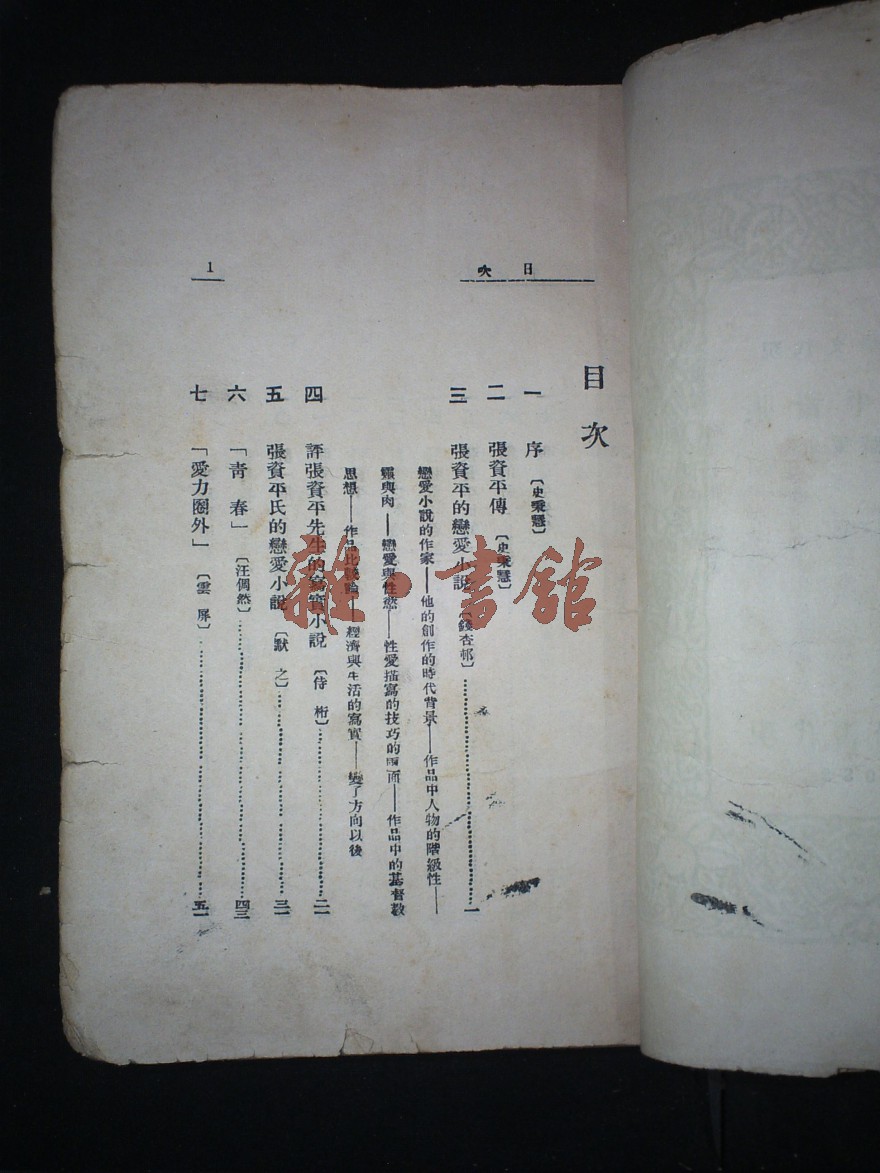 目次
1
目次
一 序〔史秉慧〕
二 張資平傳〔史秉慧〕
三 張資平的戀愛小說〔錢杏邨〕……一
戀愛小說的作家——他的創作的時代背景——作品中人物的階級性——
靈與肉——戀愛與性慾——性愛描寫的技巧的兩面——作品中的基督教
思想——作品比較論——經濟與生活的寫實——變了方向以後
四 評張資平先生的寫實小說〔侍桁〕……二一
五 張資平氏的戀愛小說〔默之〕……三一
六 「靑春」〔汪倜然〕……四三
七 「愛力圈外」〔雲屏〕……五一
雜·書館